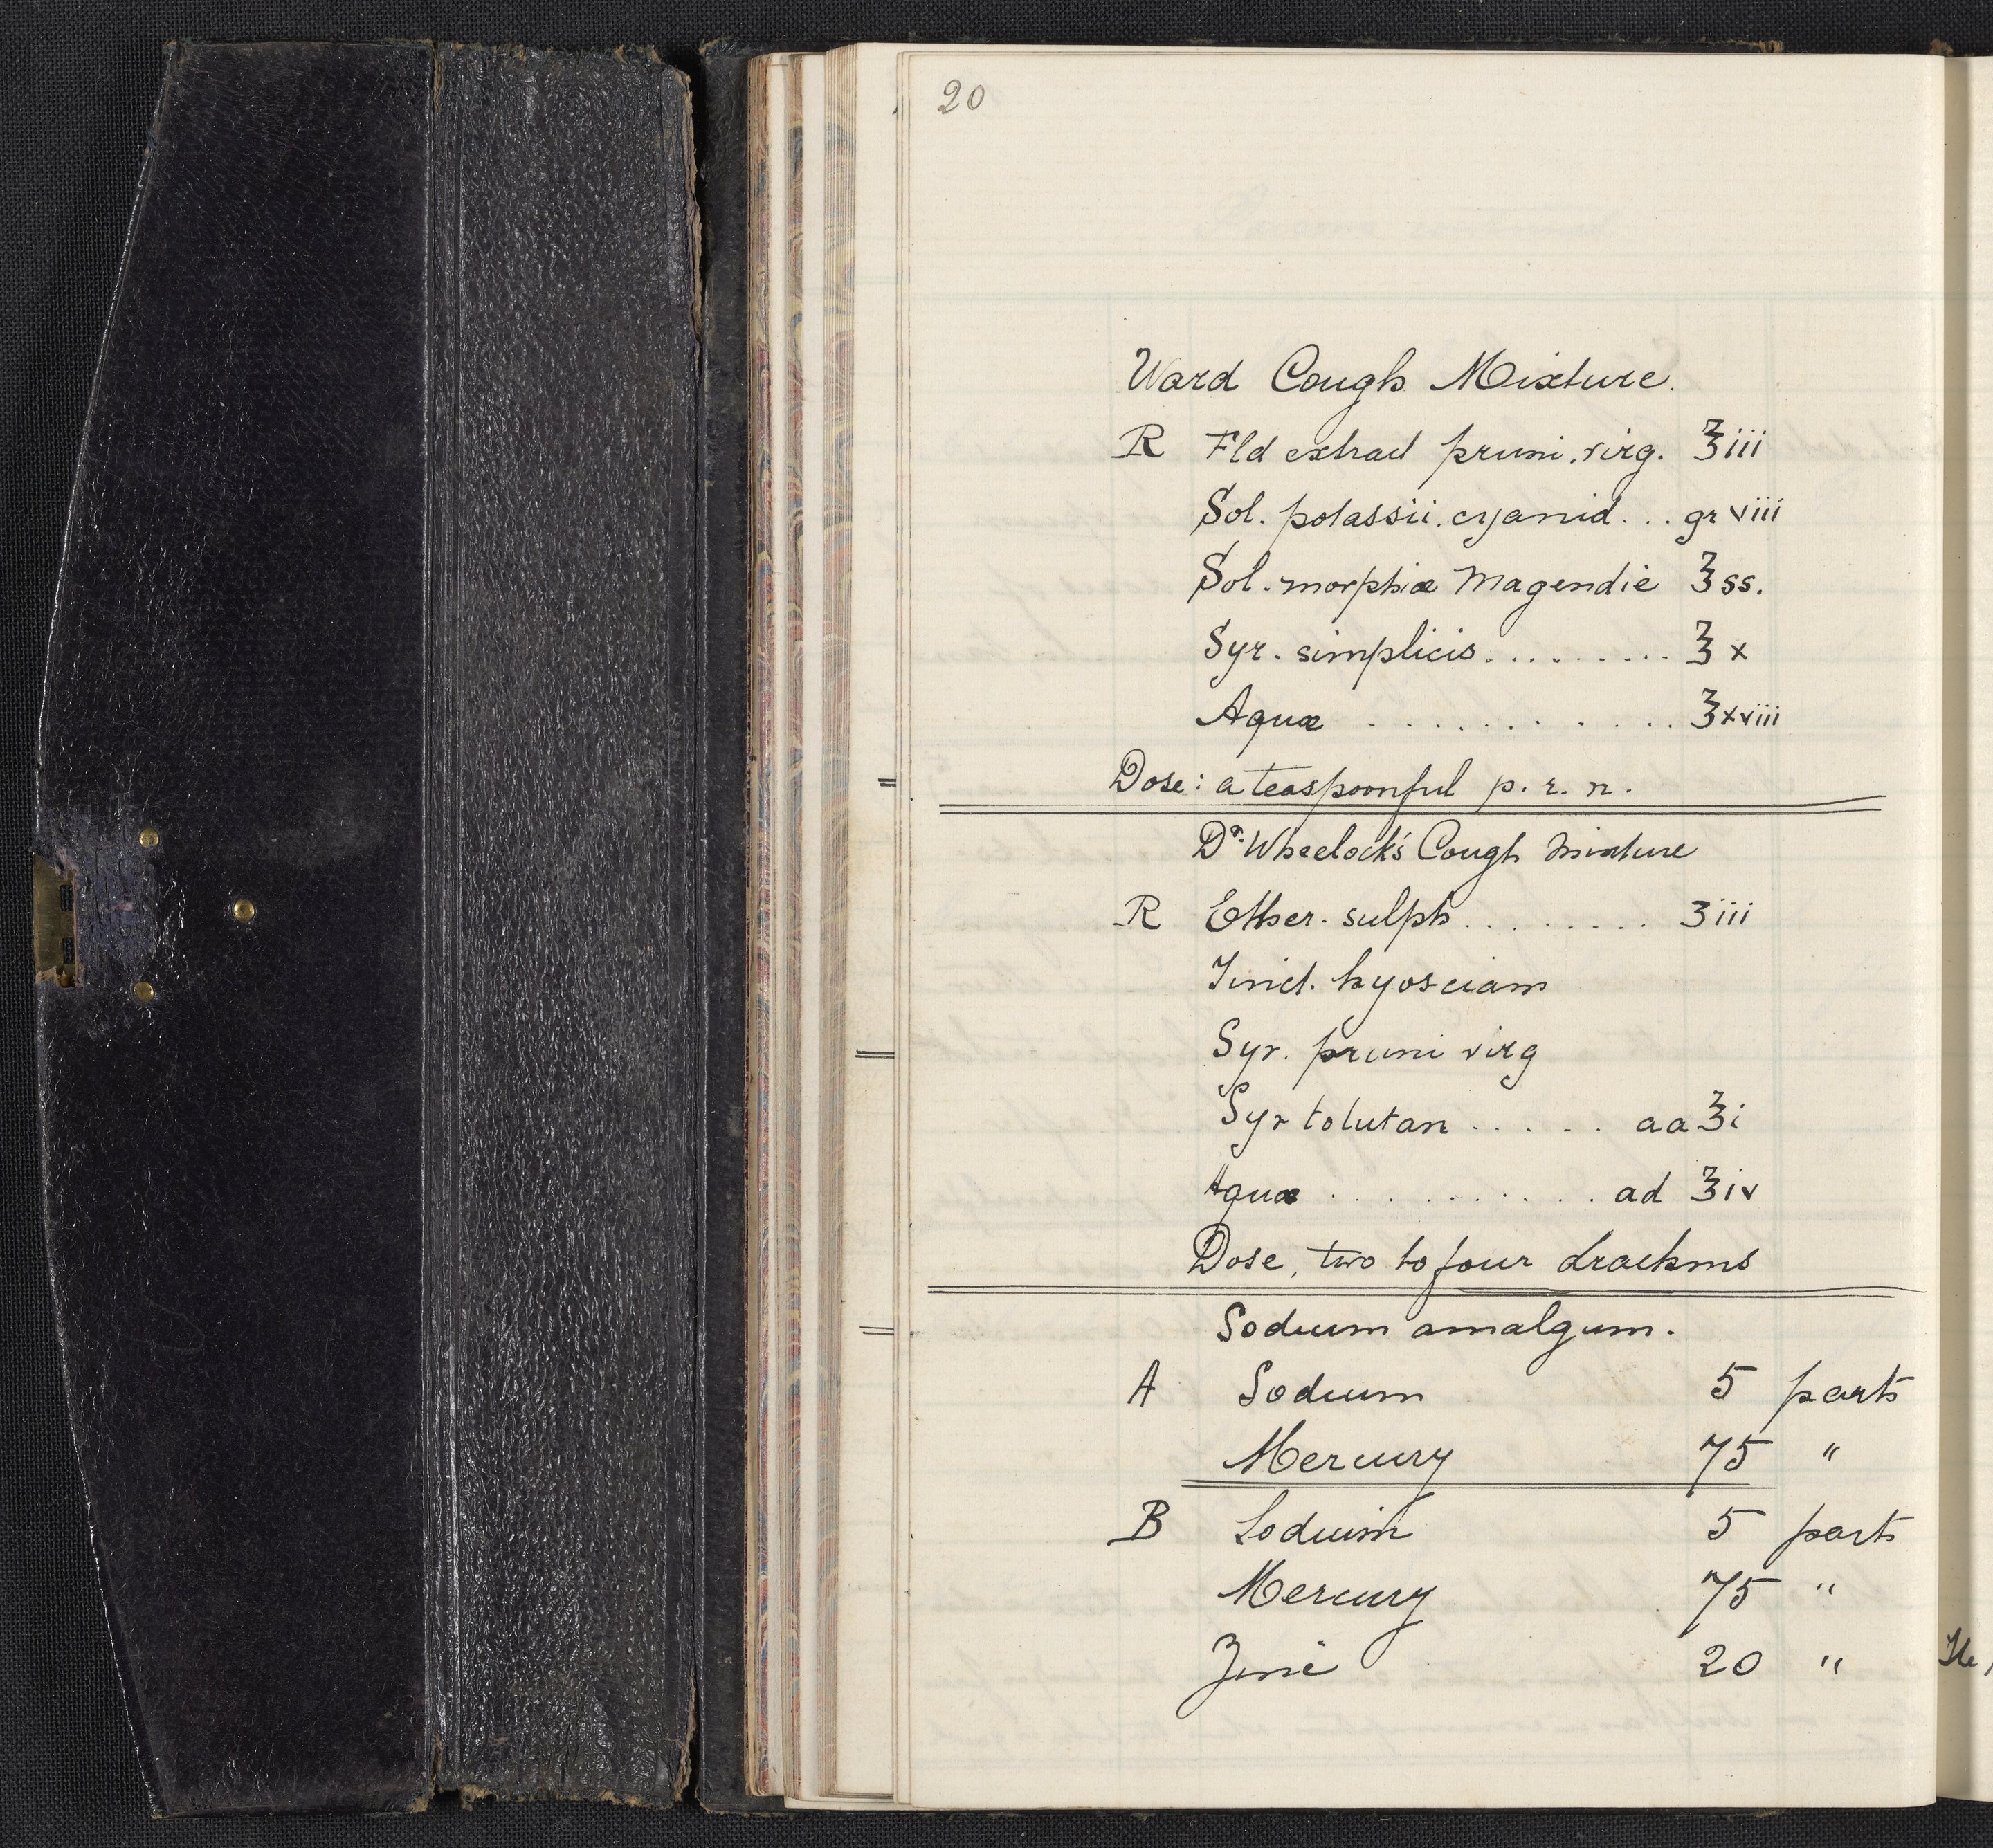 20
Ward Cough Mixture.
℞ Fld extract pruni. virg. ℥iii
Sol. potassii. cyanid... gr viii
Sol. morphiæ Magendie ℥ss.
Syr. simplicis......... ℥x
Aquæ ............ ℥xviii
Dose: a teaspoonful p. r. n.
Dr. Wheelock's Cough Mixture
℞ Ether. sulph........ ʒiii
Tinct. hyosciam
Syr. pruni virg
Syr tolutan ..... aa ℥i
Aquæ .......... ad ℥iv
Dose, two to four drachms
Sodium amalgum.
A Sodium 5 parts
Mercury 75 "
B Sodium 5 parts
Mercury 75 "
Zinc 20 "